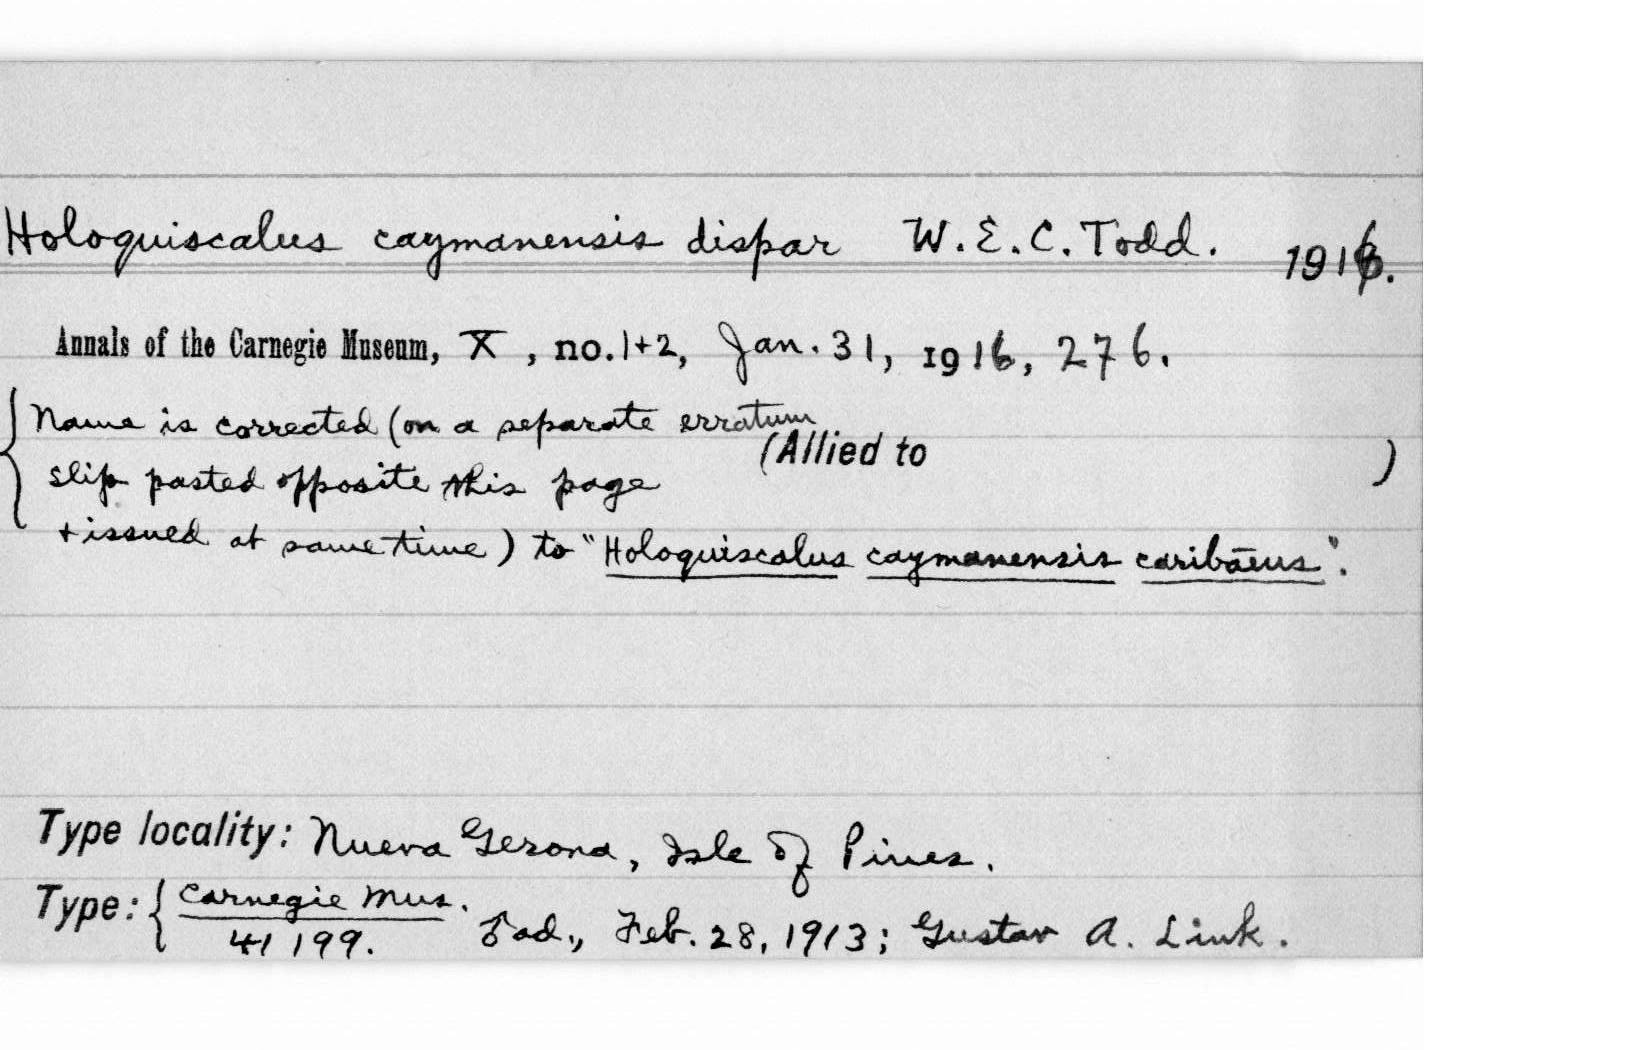 Holoquiscalus caymanensis dispar W.E.C. Todd. 1916.
Annals of the Carnegie Museum, X, no. 1+2, Jan. 31, 1916, 276.
Name is corrected (on a separate erratum
(Allied to )
slip pasted opposite this page
+ issued at same time) to "Holoquiscalus caymanensis caribāeus".
Type locality: Nueva Gerona, Isle of Pines.
Type: { Carnegie Mus.
41199. ♂ ad., Feb. 28, 1913; Gustav A. Link.